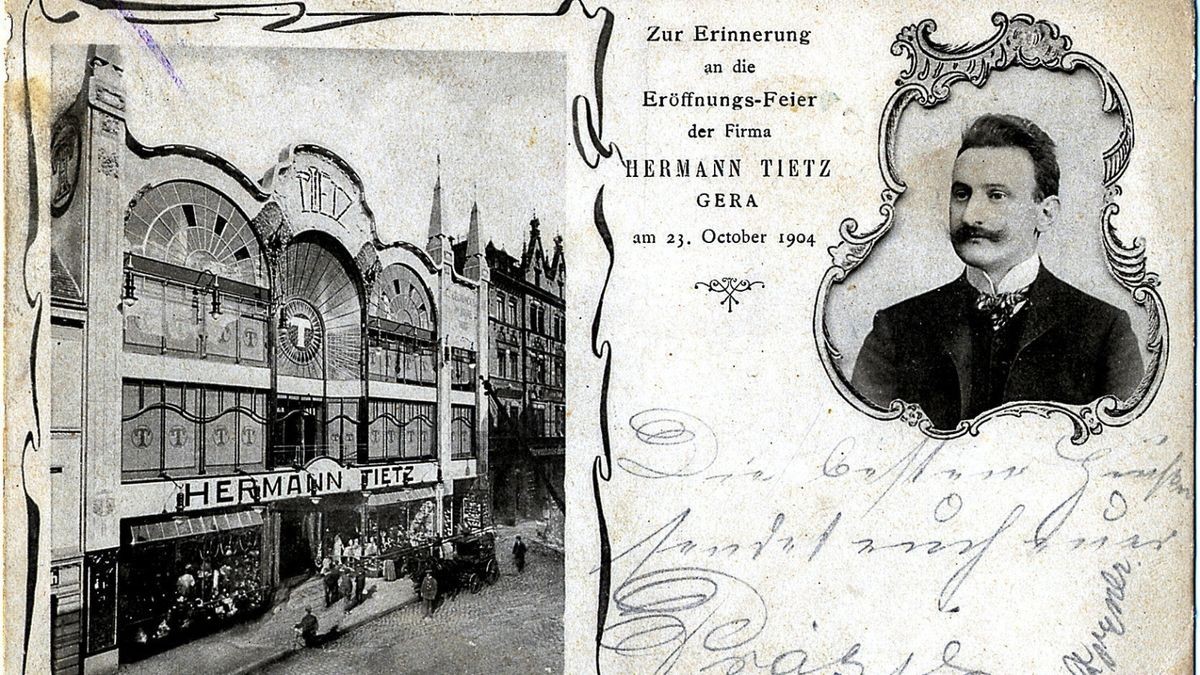 Zur Erinnerung
an die
Eröffnungs-Feier
der Firma
HERMANN TIETZ
GERA
am 23. October 1904
TIETZ
T
T T T
T T T
HERMANN TIETZ
Die besten Grüße
sendet euch euer